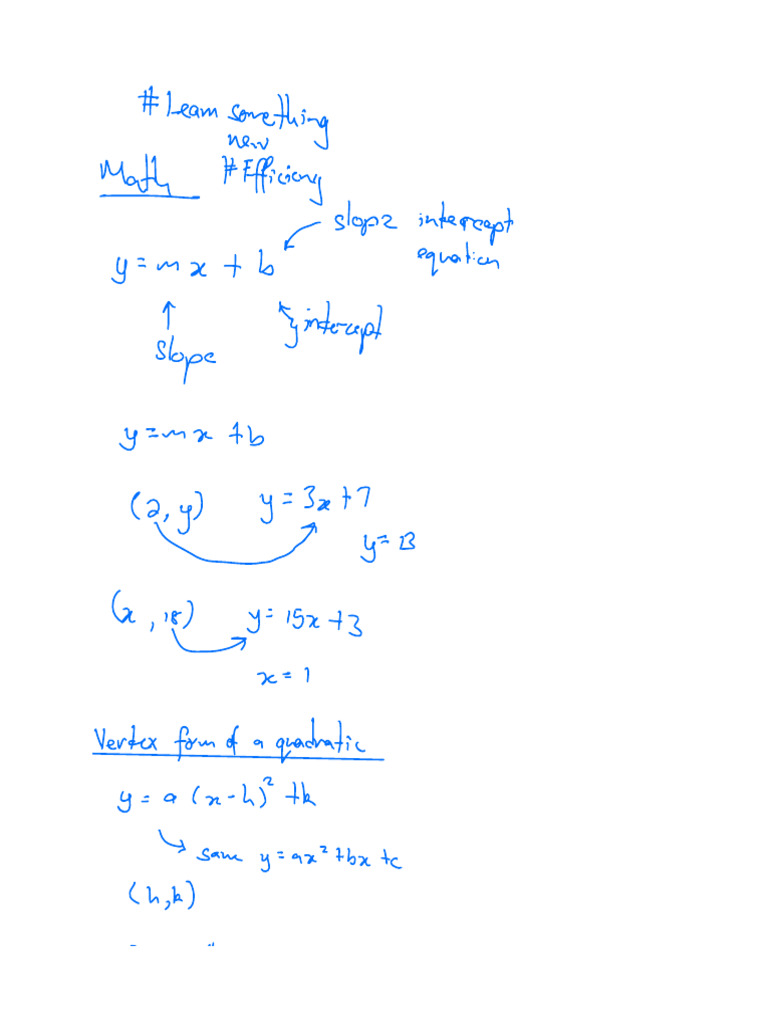 # Learn something
new
Math # Efficiency
slope intercept
equation
y = mx + b
slope
y intercept
y = mx + b
(2, y) y = 3x + 7
y = 13
(x, 18) y = 15x + 3
x = 1
Vertex form of a quadratic
y = a (x - h)² + k
same y = ax² + bx + c
(h, k)